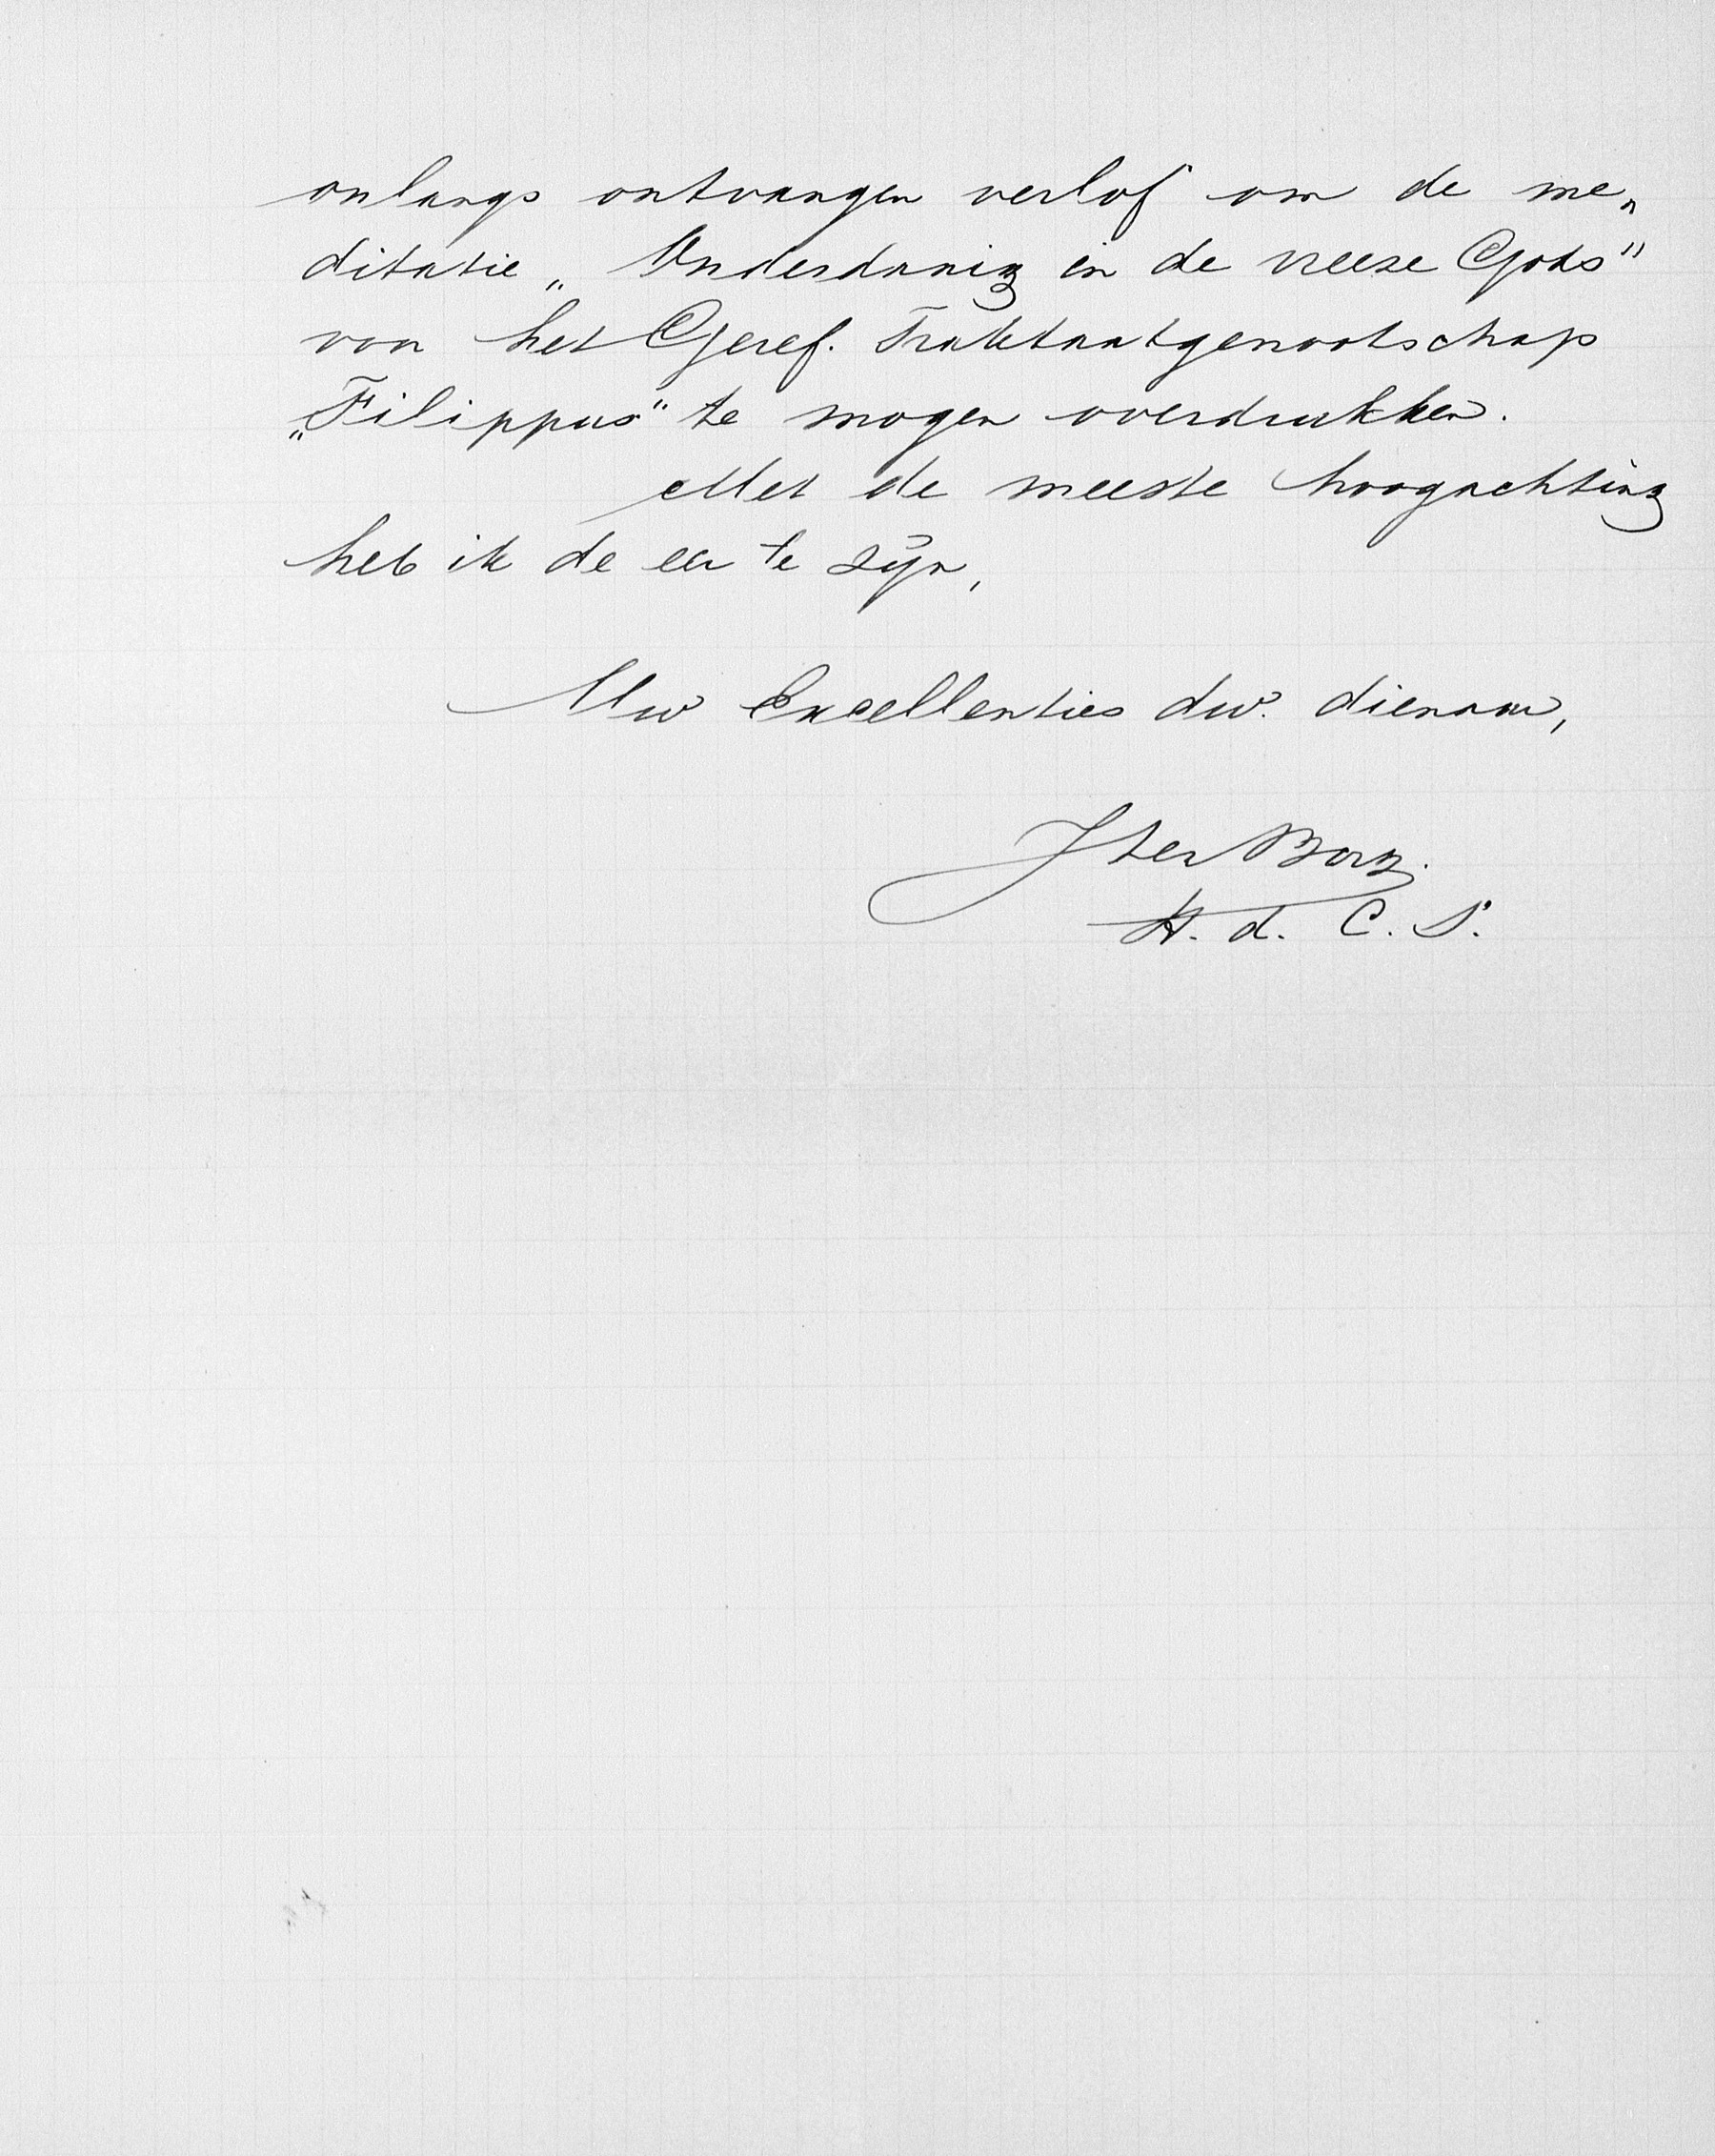 onlangs ontvangen verlof om de me„
ditatie „Onderdanig in de vreeze Gods"
voor het Geref. Traktaatgenootschap
„Filippus" te mogen overdrukken.
Met de meeste hoogachting
heb ik de eer te zijn,
Uw Excellenties dw. dienaar,
J ter Borg.
H. d. C. S.